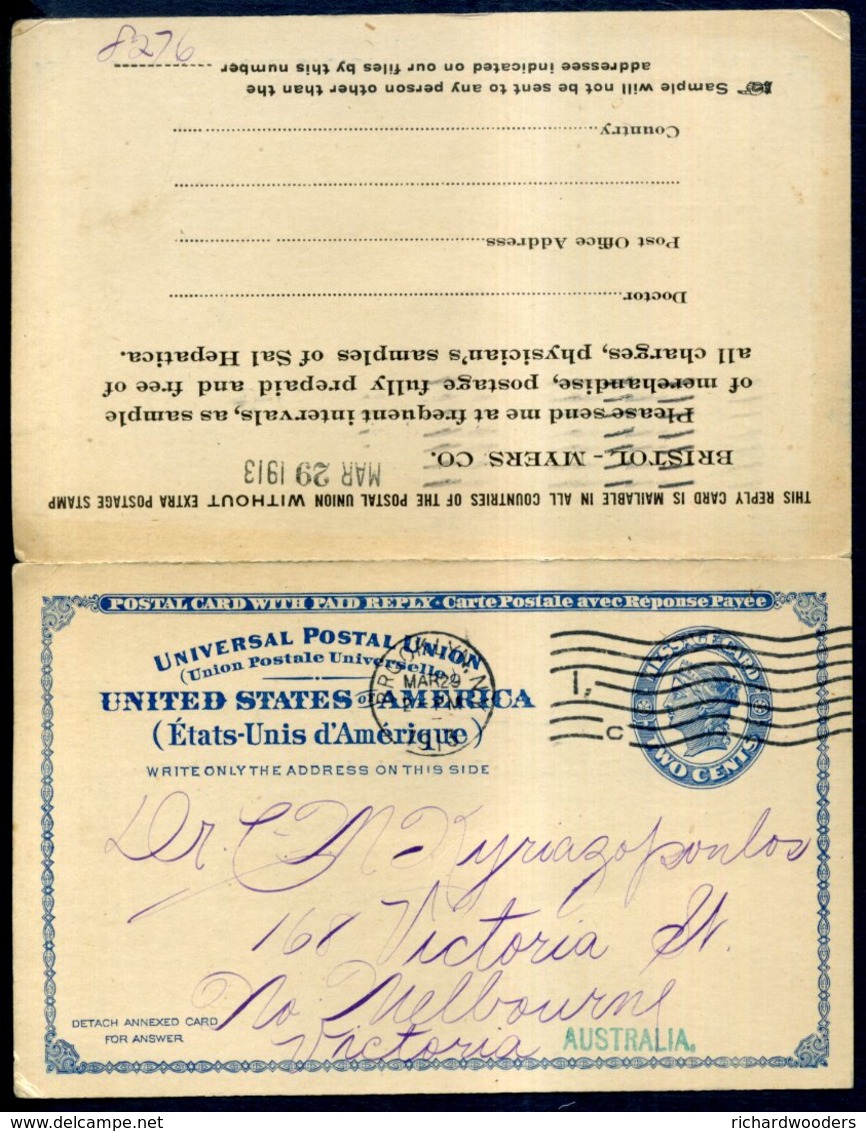 8276
addressee indicated on our files by this number
Sample will not be sent to any person other than the
Country
Post Office Address
Doctor
all charges, physician's samples of Sal Hepatica.
of merchandise, postage fully prepaid and free of
Please send me at frequent intervals, as sample
BRISTOL-MYERS CO.
MAR 29 1913
THIS REPLY CARD IS MAILABLE IN ALL COUNTRIES OF THE POSTAL UNION WITHOUT EXTRA POSTAGE STAMP
POSTAL CARD WITH PAID REPLY · Carte Postale avec Réponse Payée
UNIVERSAL POSTAL UNION
(Union Postale Universelle)
UNITED STATES OF AMERICA
(États-Unis d'Amérique)
WRITE ONLY THE ADDRESS ON THIS SIDE
BROOKLYN, N.
MAR 29
1913
1,-
C
MESSAGE CARD
TWO CENTS
Dr. C M Kyriazopoulos
168 Victoria St.
No Melbourne
Victoria
AUSTRALIA.
DETACH ANNEXED CARD
FOR ANSWER
richardwooders